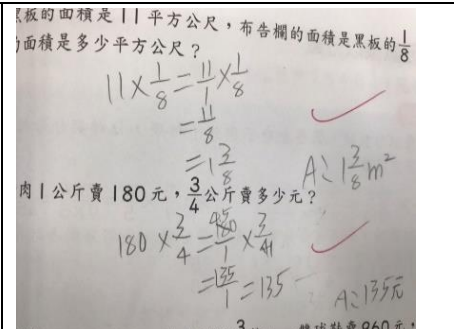 黑板的面積是11平方公尺，布告欄的面積是黑板的1/8
的面積是多少平方公尺？
11×1/8=11/1×1/8
=11/8
=1 3/8
A：1 3/8 m²
肉1公斤賣180元，3/4公斤賣多少元？
180×3/4=180/1×3/4
45
1
=135/1=135
A：135元
3
960元，